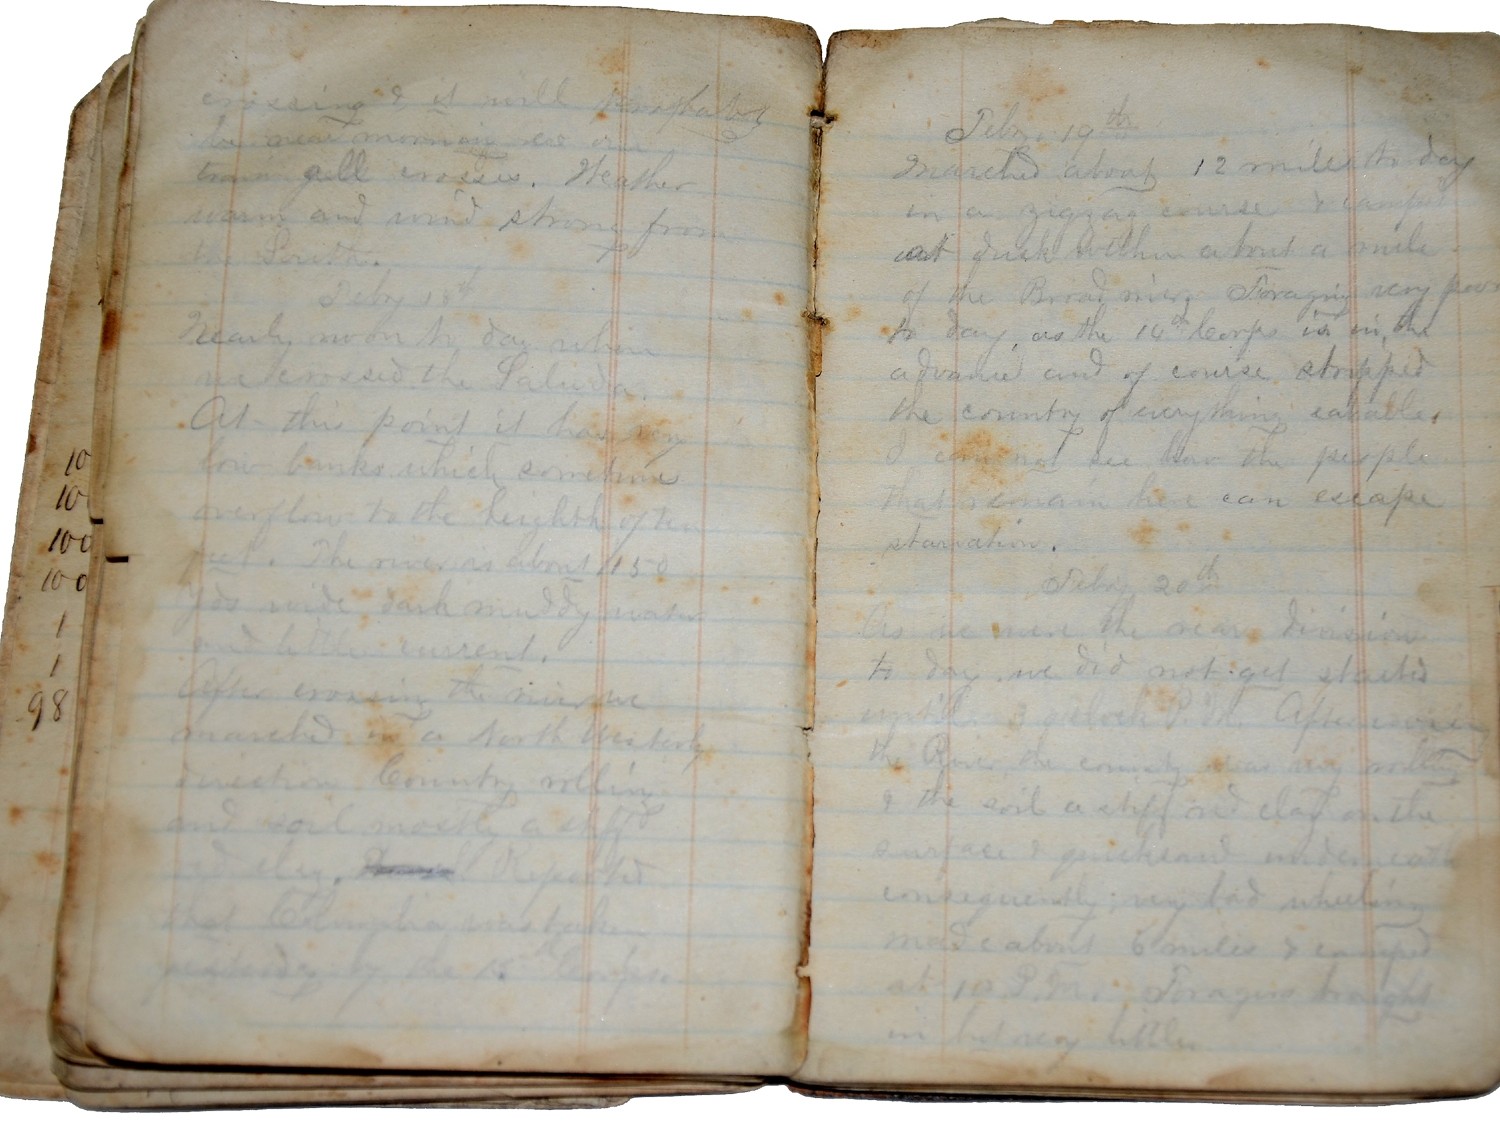 10
10
100
100
1
1
98
crossing & it will probably
be near morning ere our
train gell crosses. Weather
warm and wind strong from
the South.
Feby 18th
Nearly noon to day when
we crossed the Saluda.
At this point it has very
low banks which sometimes
overflow to the heighth of ten
feet. The river is about 150
yds wide, dark muddy water
and little current.
After crossing the river we
marched in a North Westerly
direction Country rolling
and soil mostly a stiff
red clay. Reported
that Columbia was taken
yesterday by the 15th Corps.
Feby. 19th
Marched about 12 miles to day
in a zigzag course & camped
at dusk within about a mile
of the Broad river Foraging very poor
to day, as the 14th Corps is in the
advance and of course stripped
the country of everything eatable.
I can not see how the people
that remain here can escape
starvation.
Feby 20th
As we were the rear division
to day we did not get started
until o'clock P.M. After
the River the country was very rolling
& the soil a stiff red clay on the
surface & quicksand underneath
consequently very bad wheeling
made about 6 miles & camped
at 10 P.M. Foragers braught
in but very little.